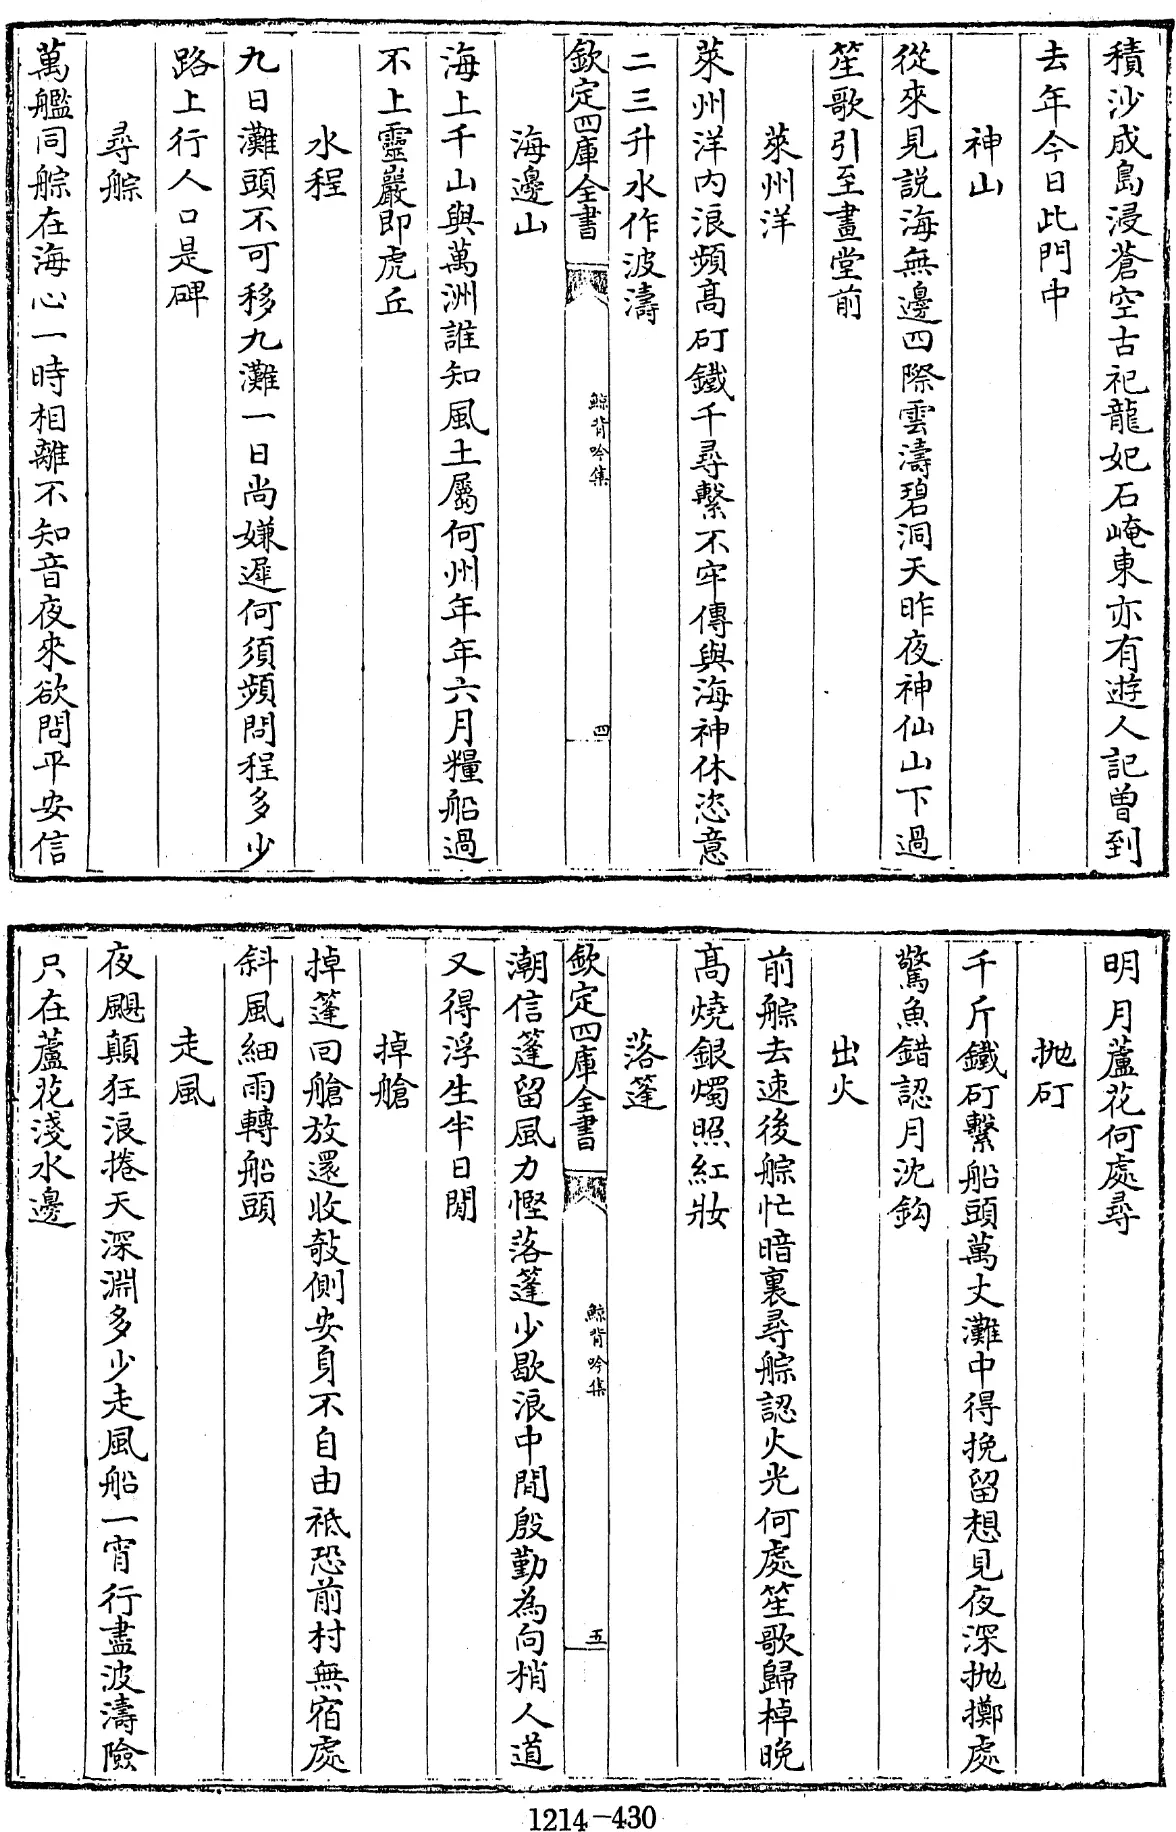 積沙成島浸蒼空古祀龍妃石崦東亦有遊人記曽到
去年今日此門中
神山
從來見説海無邊四際雲濤碧洞天昨夜神仙山下過
笙歌引至畫堂前
萊州洋
萊州洋内浪頻髙矴鐵千尋繫不牢傳與海神休恣意
二三升水作波濤
欽定四庫全書
鯨背吟集
四
海邊山
海上千山與萬洲誰知風土屬何州年年六月糧船過
不上靈巖即虎丘
水程
九日灘頭不可移九灘一日尚嫌遲何須頻問程多少
路上行人口是碑
尋䑸
萬艦同䑸在海心一時相離不知音夜來欲問平安信
明月蘆花何處尋
抛矴
千斤鐵矴繫船頭萬丈灘中得挽留想見夜深抛擲處
驚魚錯認月沈鈎
出火
前䑸去速後䑸忙暗裏尋䑸認火光何處笙歌歸棹晩
髙燒銀燭照紅妝
落篷
欽定四庫全書
鯨背吟集
五
潮信篷留風力慳落篷少歇浪中間殷勤為向梢人道
又得浮生半日閒
掉艙
掉篷囘艙放還收攲側安身不自由祗恐前村無宿處
斜風細雨轉船頭
走風
夜颶顛狂浪捲天深淵多少走風船一宵行盡波濤險
只在蘆花淺水邊
1214-430